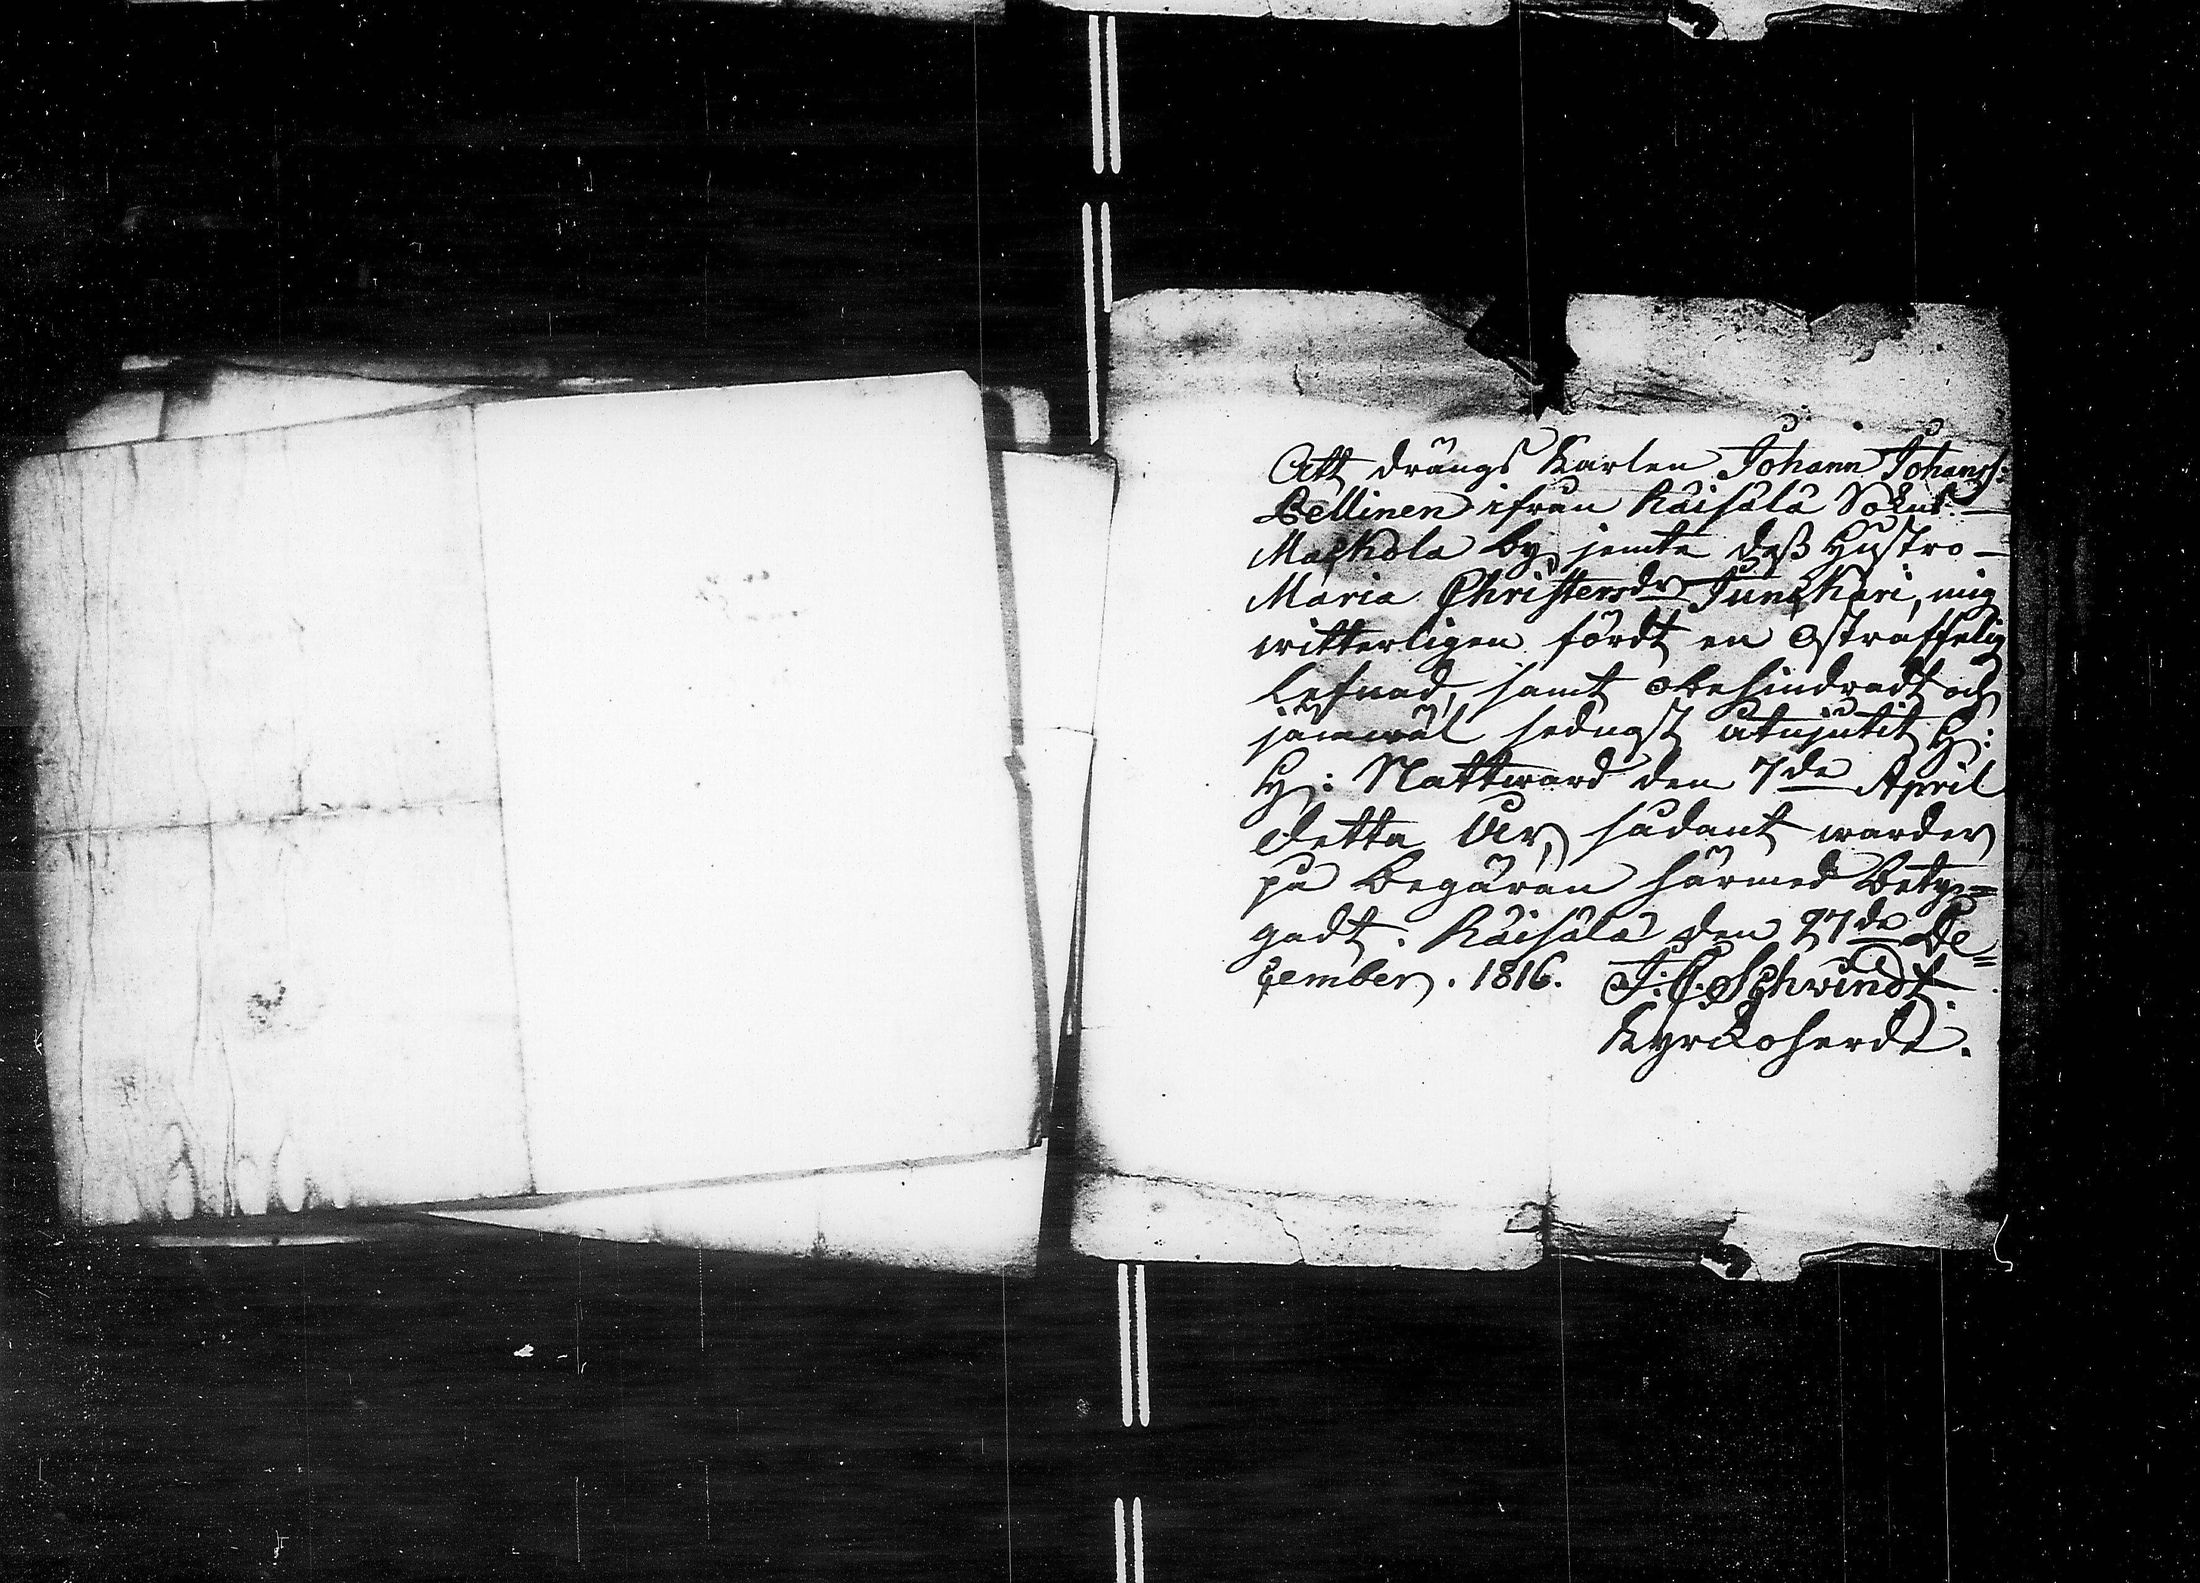 Att drängs Karlen Johann Johanss:
Pellinen ifrån Räisälä Sokns
Mackola by, jemte deß Hustro
Maria Christersdr Junckari, mig
witterligen fördt en ostraffelig
Lefnad, samt obehindradt och
jämwäl sednast åtnjutit H:
H: Nattward den 7de April
detta År, sådant warder
på begäran härmed betyg=
gadt. Räisälä den 27de De=
cember. 1816. J: C: Schwindt.
Kyrckoherde.